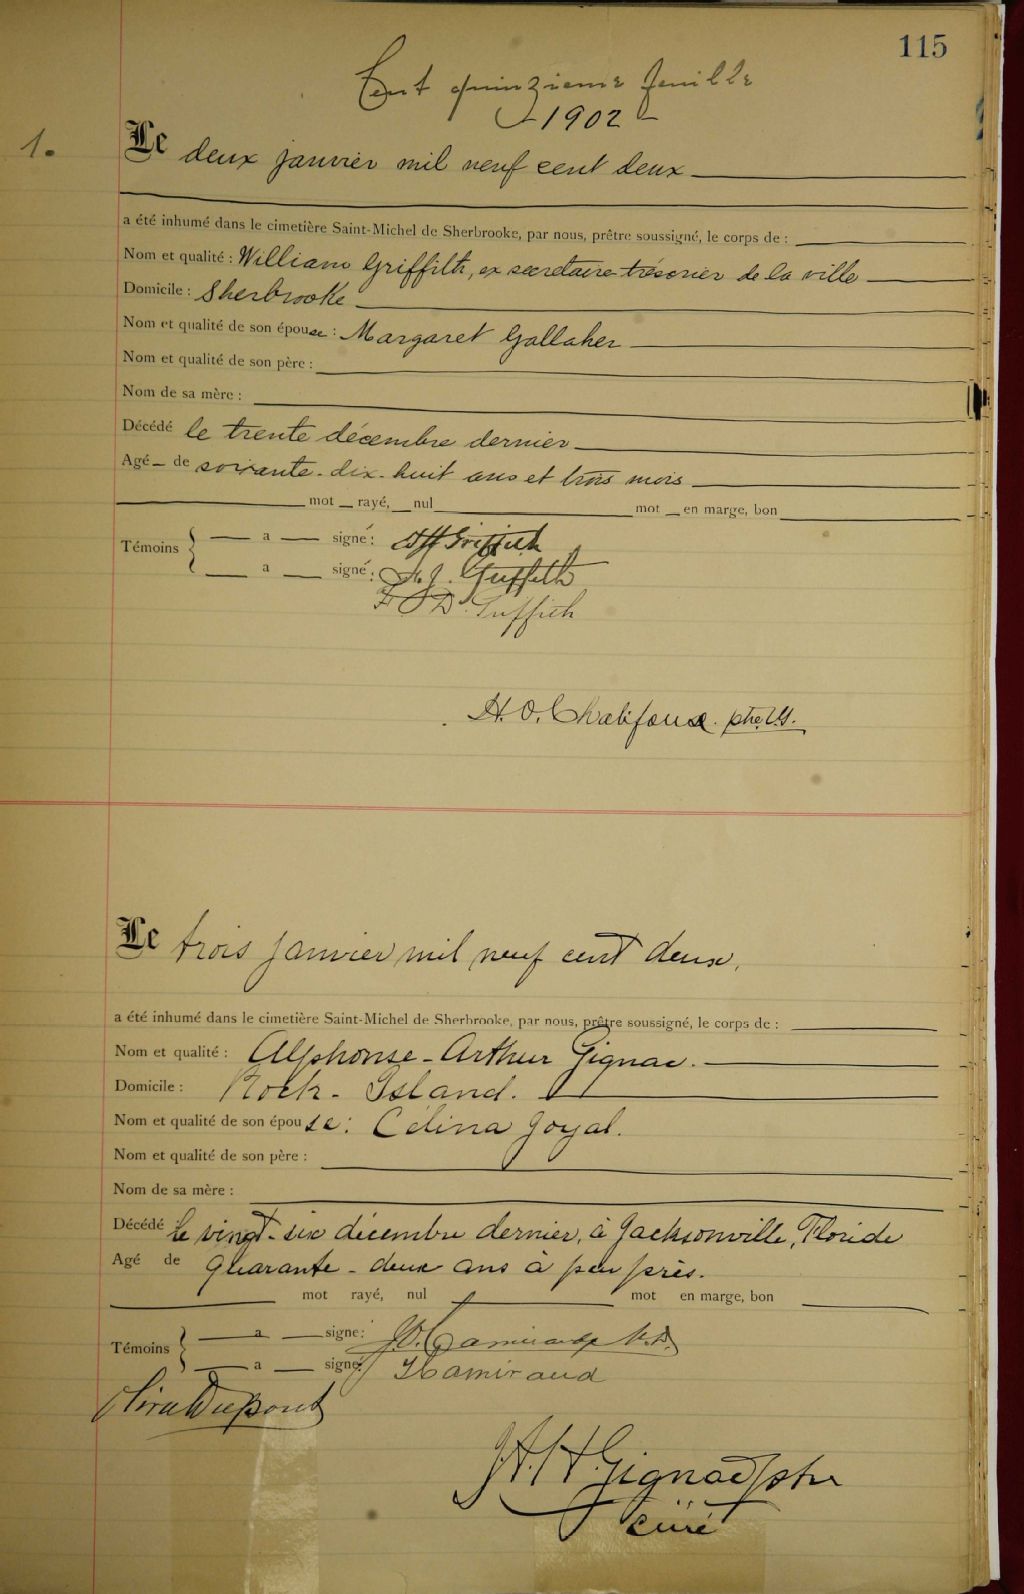 115
Cent quinzieme feuille
1902
1.
Le deux janvier mil neuf cent deux
a été inhumé dans le cimetière Saint-Michel de Sherbrooke, par nous, prêtre soussigné, le corps de :
Nom et qualité : William Griffith, ex secretaire-trésorier de la ville
Domicile : Sherbrooke
Nom et qualité de son épouse : Margaret Gallaher
Nom et qualité de son père :
Nom de sa mère :
Décédé le trente décembre dernier
Agé - de soixante-dix-huit ans et trois mois
mot rayé, nul mot en marge, bon
Témoins { a signé : Griffith
a signé : H. J. Griffith
F. D. Griffith
H. O. Chalifoux. ptre, V.G.
Le trois janvier mil neuf cent deux,
a été inhumé dans le cimetière Saint-Michel de Sherbrooke, par nous, prêtre soussigné, le corps de :
Nom et qualité : Alphonse-Arthur Gignac.
Domicile : Rock-Island.
Nom et qualité de son épouse : Célina Goyal.
Nom et qualité de son père :
Nom de sa mère :
Décédé le vingt-six décembre dernier, à Jacksonville, Floride
Agé de quarante-deux ans à peu près.
mot rayé, nul mot en marge, bon
Témoins { a signé : Camirand
a signé Camirand
Dupont
J. A. H. Gignac ptre
curé